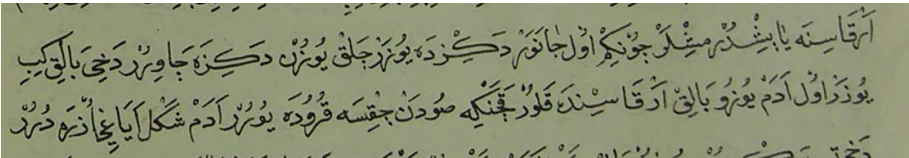 اَرْقَاسِنَه يَابِشْدُرْمِشْلَرْ چُونْكِمْ اُولْ جَانَوَرْ دَكِزْدَه يُوزَرْ خَلْقْ يُوزُنْ دَكِزَه چَاوِرُرْ دَخِى بَالِقْ كِبِ
يُوزَرْ اُولْ اٰدَمْ يُوزُو بَالِقْ اَرْقَاسِنْدَه قَلُورْ قَچَنْكِه صُودَنْ چِقْسَه قُرُودَه يُورُرْ اٰدَمْ شَكِلْ اَيَاغِى اُزَرَه دُرُرْ